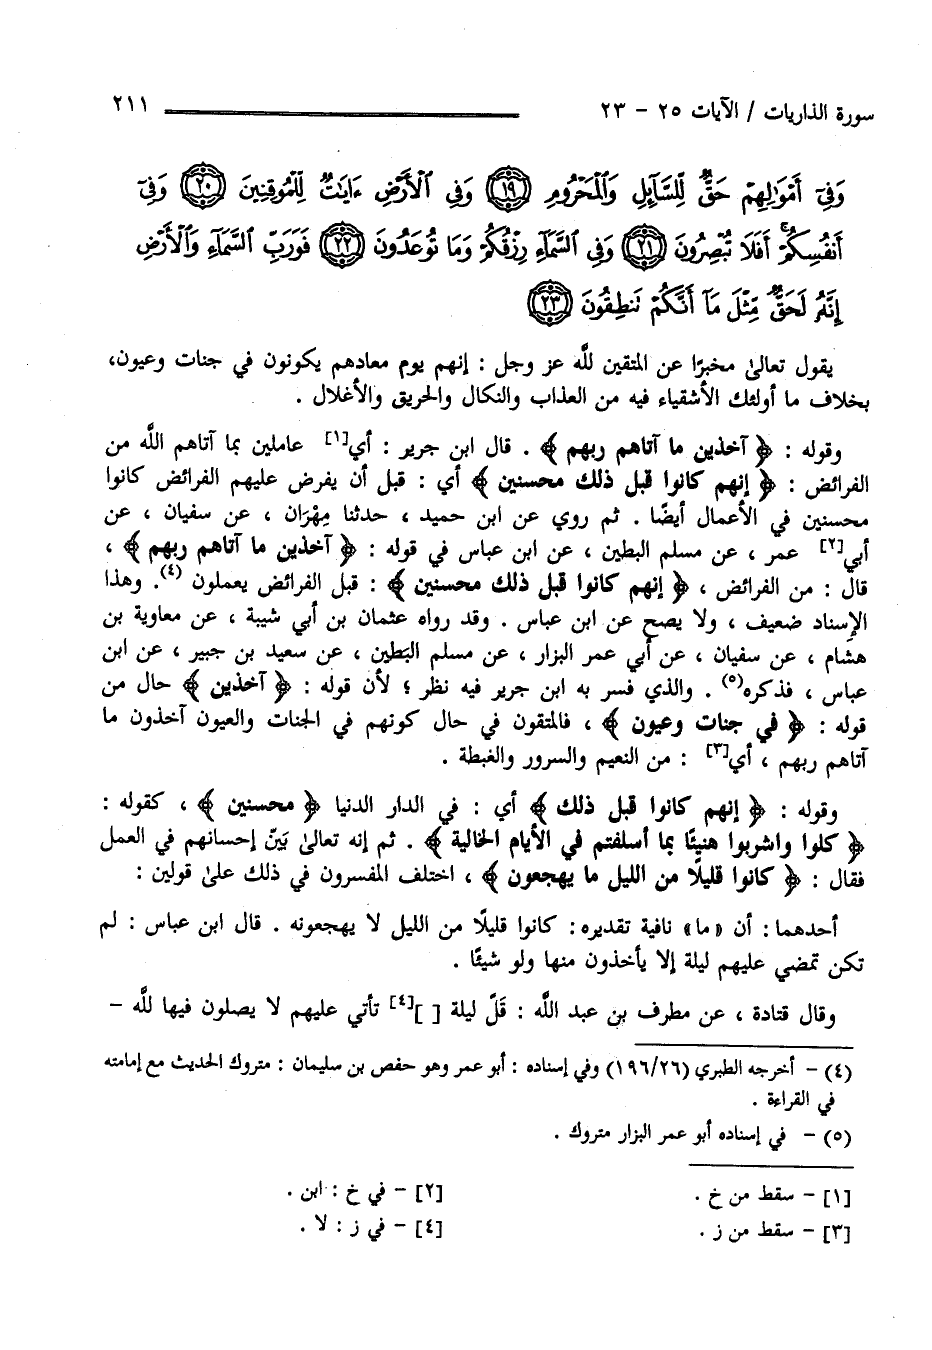 سورة الذاريات / الآيات ٢٥ - ٢٣ ٢١١
وَفِىٓ أَمْوَٰلِهِمْ حَقٌّ لِّلسَّآئِلِ وَٱلْمَحْرُومِ ﴿١٩﴾ وَفِى ٱلْأَرْضِ ءَايَٰتٌ لِّلْمُوقِنِينَ ﴿٢٠﴾ وَفِىٓ
أَنفُسِكُمْ ۚ أَفَلَا تُبْصِرُونَ ﴿٢١﴾ وَفِى ٱلسَّمَآءِ رِزْقُكُمْ وَمَا تُوعَدُونَ ﴿٢٢﴾ فَوَرَبِّ ٱلسَّمَآءِ وَٱلْأَرْضِ
إِنَّهُۥ لَحَقٌّ مِّثْلَ مَآ أَنَّكُمْ تَنطِقُونَ ﴿٢٣﴾
يقول تعالى مخبرًا عن المتقين لله عز وجل : إنهم يوم معادهم يكونون في جنات وعيون،
بخلاف ما أولئك الأشقياء فيه من العذاب والنكال والحريق والأغلال .
وقوله : ﴿ آخذين ما آتاهم ربهم ﴾ . قال ابن جرير : أي[١] عاملين بما آتاهم الله من
الفرائض : ﴿ إنهم كانوا قبل ذلك محسنين ﴾ أي : قبل أن يفرض عليهم الفرائض كانوا
محسنين في الأعمال أيضًا . ثم روي عن ابن حميد ، حدثنا مِهْرَان ، عن سفيان ، عن
أبي[٢] عمر ، عن مسلم البطين ، عن ابن عباس في قوله : ﴿ آخذين ما آتاهم ربهم ﴾ ،
قال : من الفرائض ، ﴿ إنهم كانوا قبل ذلك محسنين ﴾ : قبل الفرائض يعملون (٤). وهذا
الإسناد ضعيف ، ولا يصح عن ابن عباس . وقد رواه عثمان بن أبي شيبة ، عن معاوية بن
هشام ، عن سفيان ، عن أبي عمر البزار ، عن مسلم البَطين ، عن سعيد بن جبير ، عن ابن
عباس ، فذكره(٥) . والذي فسر به ابن جرير فيه نظر ؛ لأن قوله : ﴿ آخذين ﴾ حال من
قوله : ﴿ في جنات وعيون ﴾ ، فالمتقون في حال كونهم في الجنات والعيون آخذون ما
آتاهم ربهم ، أي[٣] : من النعيم والسرور والغبطة .
وقوله : ﴿ إنهم كانوا قبل ذلك ﴾ أي : في الدار الدنيا ﴿ محسنين ﴾ ، كقوله :
﴿ كلوا واشربوا هنيئًا بما أسلفتم في الأيام الخالية ﴾ . ثم إنه تعالى بَيّن إحسانهم في العمل
فقال : ﴿ كانوا قليلًا من الليل ما يهجعون ﴾ ، اختلف المفسرون في ذلك على قولين :
أحدهما : أن «ما» نافية تقديره: كانوا قليلًا من الليل لا يهجعونه . قال ابن عباس : لم
تكن تمضي عليهم ليلة إلا يأخذون منها ولو شيئًا .
وقال قتادة ، عن مطرف بن عبد الله : قَلّ ليلة [ ][٤] تأتي عليهم لا يصلون فيها لله -
(٤) - أخرجه الطبري (١٩٦/٢٦) وفي إسناده : أبو عمر وهو حفص بن سليمان : متروك الحديث مع إمامته
في القراءة .
(٥) - في إسناده أبو عمر البزار متروك .
[١] - سقط من خ . [٢] - في خ : ابن .
[٣] - سقط من ز . [٤] - في ز : لا .